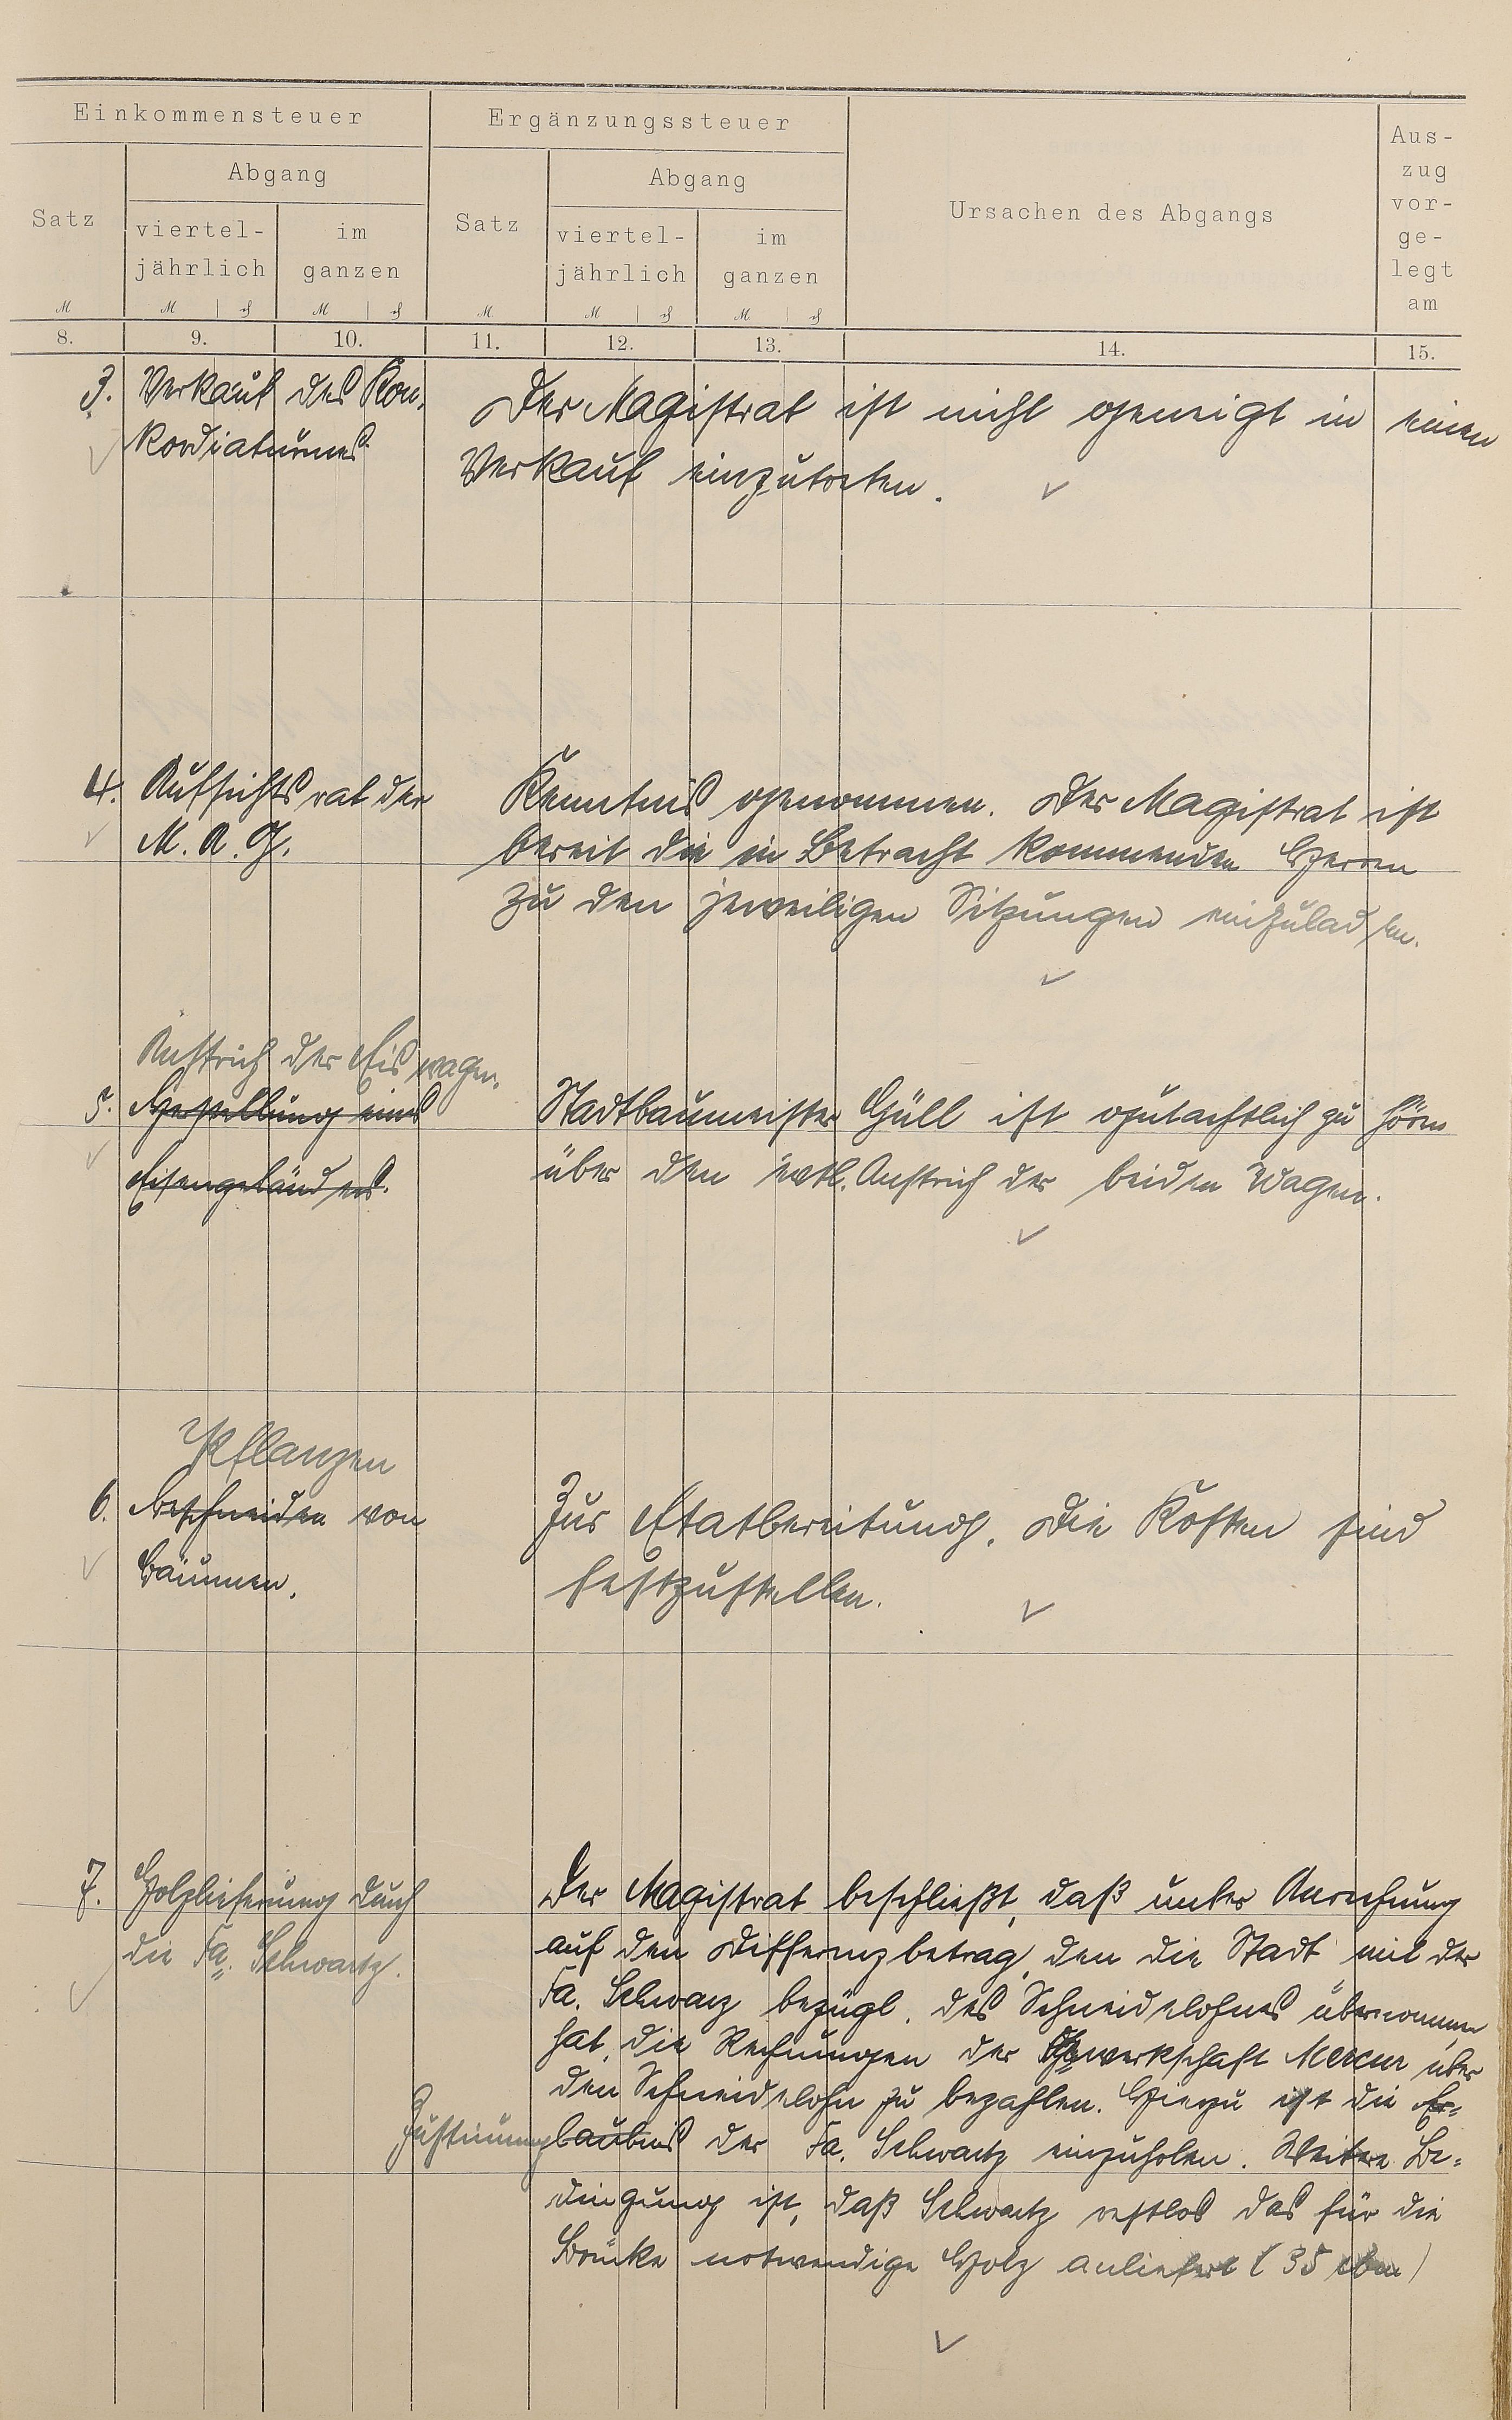 Einkommensteuer
Ergänzungssteuer
Ursachen des Abgangs
Aus-
zug
vor-
ge-
legt
am
Satz
Abgang
viertel-
jährlich
im
ganzen
Satz
Abgang
viertel-
jährlich
im
ganzen
M
M
M
M
M
M
8. 9. 10. 11. 12. 13. 14. 15.
3. Verkauf des Kon-
kordiaturmes.
Der Magistrat ist nicht geneigt in einen
Verkauf einzutreten.
4. Aufsichtsrat der
M. A. G.
Kenntnis genommen. Der Magistrat ist
bereit die in Betracht kommenden Herren
zu den jeweiligen Sitzungen einzuladen.
Anstrich der Eiswagen.
5. Herstellung eines
Eisengeländers.
Stadtbaumeister Güll ist gutachtlich zu hören
über den evtl. Anstrich der beiden Wagen.
Pflanzen
6. Beschneiden von
Bäumen.
Zur Etatberatung. Die Kosten sind
festzustellen.
7. Holzlieferung durch
die Fa. Schwartz.
Der Magistrat beschließt, daß unter Anrechnung
auf den Differenzbetrag, den die Stadt mit der
Fa. Schwarz bezügl. des Schneidelohnes übernommen
hat, die Rechnungen der Gewerkschaft Mercur über
den Schneidelohn zu bezahlen. Hiezu ist die Er-
Zustimmung laubnis der Fa. Schwartz einzuholen. Weitere Be-
dingung ist, daß Schwartz restlos das für die
Brücke notwendige Holz anliefert (35 cbm)